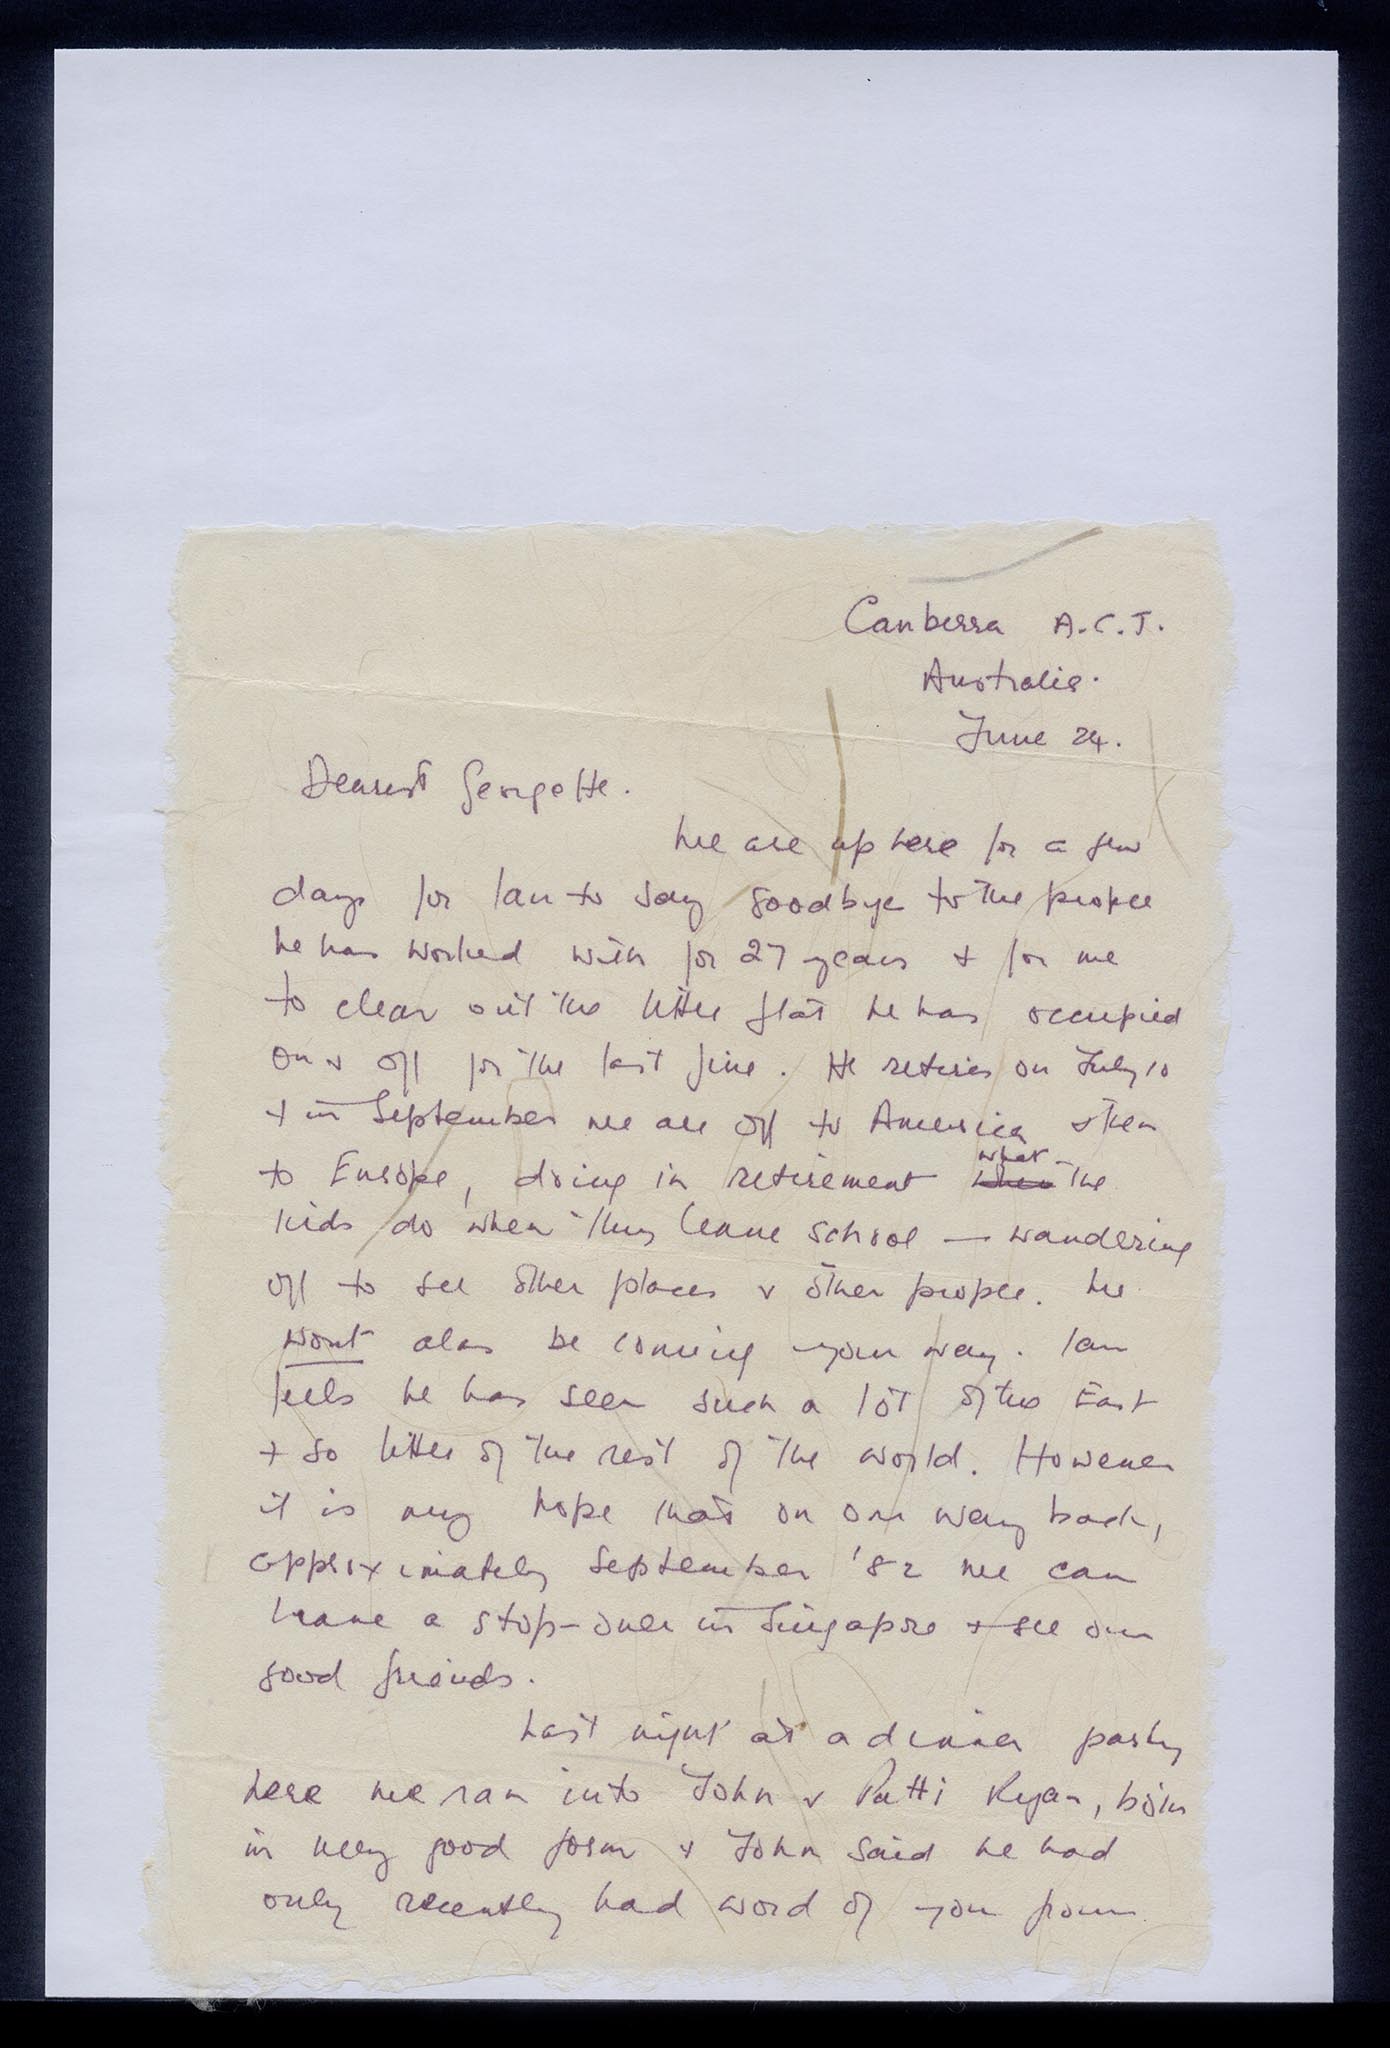 Canberra A.C.T.
Australia.
June 24.
Dearest Georgette.
We are up here for a few
days for Ian to say goodbye to the people
he has worked with for 27 years + for me
to clear out the little flat he has occupied
on & off for the last five. He retires on July 10
+ in September we are off to America & then
to Europe, doing in retirement what the
kids do when they leave school — wandering
off to see other places & other people. We
wont alas be coming your way. Ian
feels he has seen such a lot of the East
+ so little of the rest of the world. However
it is my hope that on our way back,
approximately September '82 we can
have a stop-over in Singapore + see our
good friends.
Last night at a dinner party
here we ran into John & Patti Ryan, both
in very good form & John said he had
only recently had word of you from